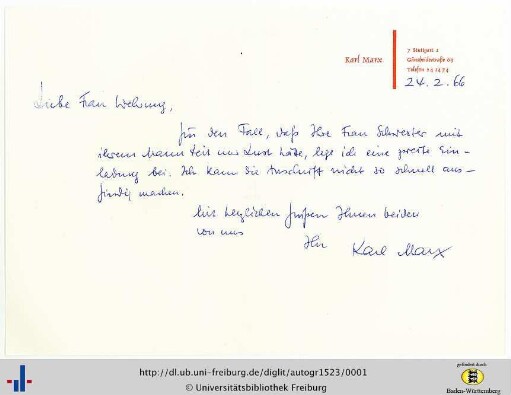 Karl Marx
7 Stuttgart 1
Telefon
24.2.66
Liebe Frau Wehrung,
für den Fall, daß Ihre Frau Schwester mit
ihrem Mann Zeit und Lust hätte, lege ich eine zweite Ein-
ladung bei. Ich kann die Anschrift nicht so schnell aus-
findig machen.
Mit herzlichen Grüßen Ihnen beiden
von uns
Ihr Karl Marx
http://dl.ub.uni-freiburg.de/diglit/autogr1523/0001
© Universitätsbibliothek Freiburg
gefördert durch
Baden-Württemberg